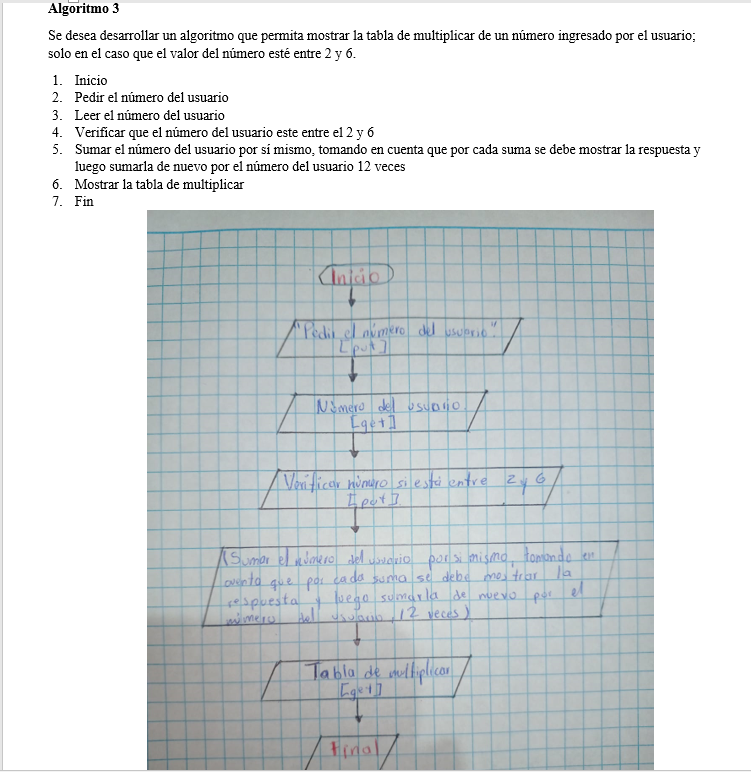 Algoritmo 3
Se desea desarrollar un algoritmo que permita mostrar la tabla de multiplicar de un número ingresado por el usuario;
solo en el caso que el valor del número esté entre 2 y 6.
1. Inicio
2. Pedir el número del usuario
3. Leer el número del usuario
4. Verificar que el número del usuario este entre el 2 y 6
5. Sumar el número del usuario por sí mismo, tomando en cuenta que por cada suma se debe mostrar la respuesta y
luego sumarla de nuevo por el número del usuario 12 veces
6. Mostrar la tabla de multiplicar
7. Fin
Inicio
"Pedir el número del usuario".
[put]
Número del usuario.
[get]
Verificar número si está entre 2 y 6
[put]
(Sumar el número del usuario por si mismo, tomando en
cuenta que por cada suma se debe mostrar la
respuesta y luego sumarla de nuevo por el
número del usuario, 12 veces)
Tabla de multiplicar
[get]
Final